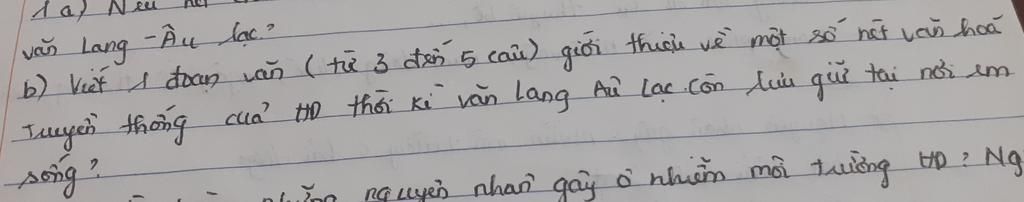 1 a) Nêu
văn Lang - Âu lạc?
b) Viết 1 đoạn văn (từ 3 đến 5 câu) giới thiệu về một số nét văn hoá
truyền thống của HD thời kì văn Lang Âu Lạc còn lưu giữ tại nơi em
sống?
nguyên nhân gây ô nhiễm môi trường HD? Ng